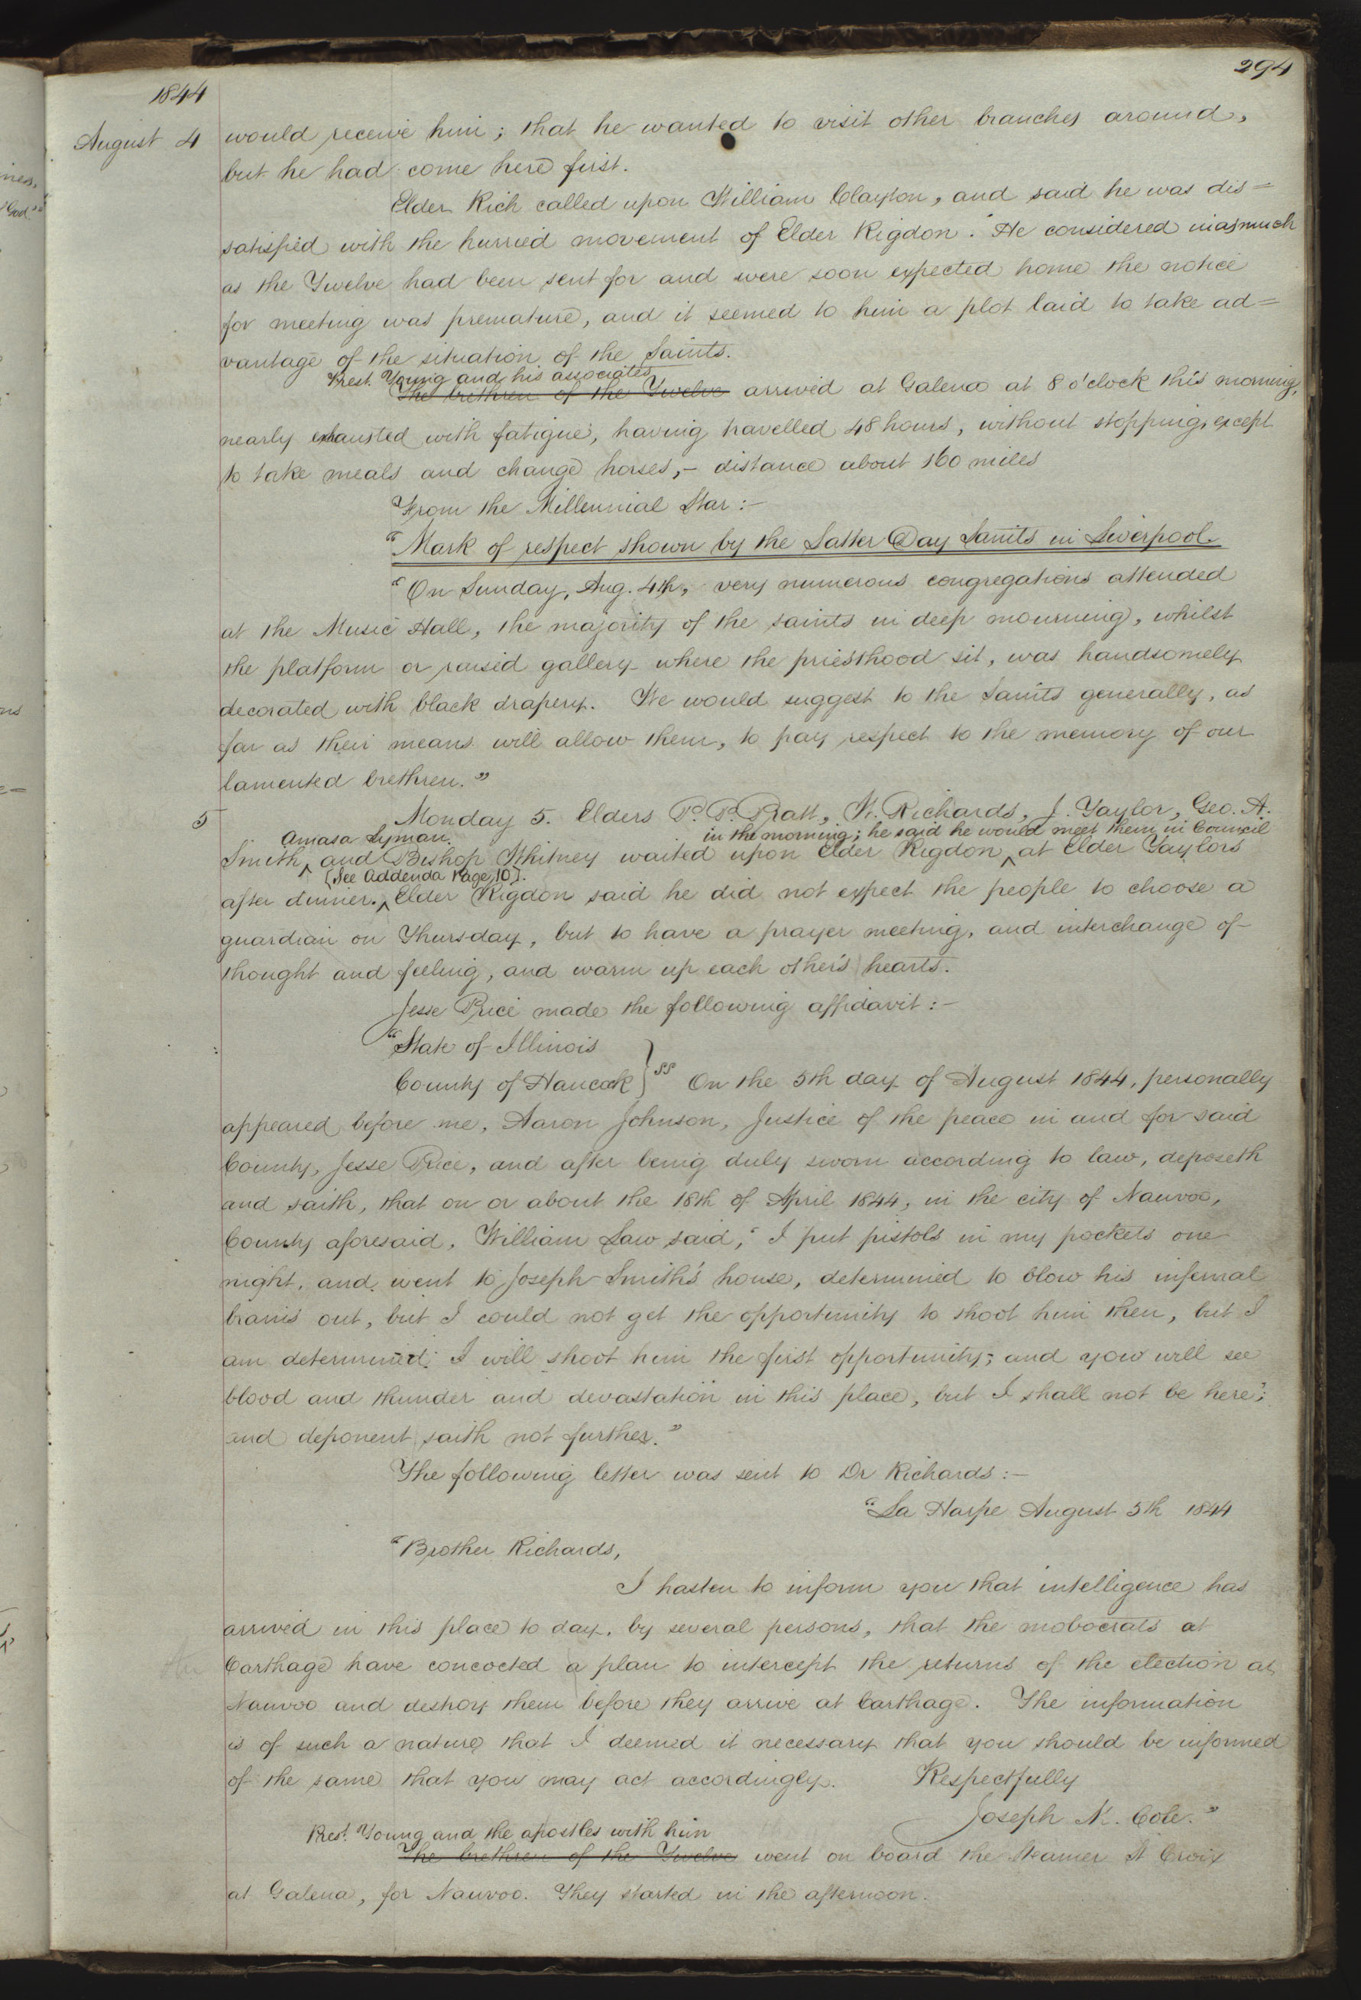 294
1844
August 4 would receive him; that he wanted to visit other branches around,
but he had come here first.
Elder Rich called upon William Clayton, and said he was dis=
satisfied with the hurried movement of Elder Rigdon. He considered inasmuch
as the Twelve had been sent for and were soon expected home the notice
for meeting was premature, and it seemed to him a plot laid to take ad=
vantage of the situation of the Saints.
Prest. Young and his associates
The brethren of the Twelve arrived at Galena at 8 o'clock this morning,
nearly exhausted with fatigue, having travelled 48 hours, without stopping, except
to take meals and change horses,- distance about 160 miles
From the Millennial Star:-
"Mark of respect shown by the Latter Day Saints in Liverpool.
"On Sunday, Aug. 4th, very numerous congregations attended
at the Music Hall, the majority of the saints in deep mourning, whilst
the platform or raised gallery where the priesthood sit, was handsomely
decorated with black drapery. We would suggest to the Saints generally, as
far as their means will allow them, to pay respect to the memory of our
lamented brethren."
5 Monday 5. Elders P. P. Pratt, W. Richards, J. Taylor, Geo. A.
Amasa Lyman in the morning; he said he would meet them in Council
Smith, ^ and Bishop Whitney waited upon Elder Rigdon ^ at Elder Taylors
[See Addenda Page 10].
after dinner. ^ Elder Rigdon said he did not expect the people to choose a
guardian on Thursday, but to have a prayer meeting, and interchange of
thought and feeling, and warm up each other's hearts.
Jesse Price made the following affidavit:-
"State of Illinois
County of Hancock } ss On the 5th day of August 1844, personally
appeared before me, Aaron Johnson, Justice of the peace in and for said
County, Jesse Price, and after being duly sworn according to law, deposeth
and saith, that on or about the 18th of April 1844, in the city of Nauvoo,
County aforesaid, William Law said, "I put pistols in my pockets one
night, and went to Joseph Smith's house, determined to blow his infernal
brains out, but I could not get the opportunity to shoot him then, but I
am determined I will shoot him the first opportunity; and you will see
blood and thunder and devastation in this place, but I shall not be here";
and deponent saith not further."
The following letter was sent to Dr Richards:-
"La Harpe August 5th 1844
"Brother Richards,
I hasten to inform you that intelligence has
arrived in this place to day, by several persons, that the mobocrats at
Carthage have concocted a plan to intercept the returns of the election at
Nauvoo and destroy them before they arrive at Carthage. The information
is of such a nature that I deemed it necessary that you should be informed
of the same that you may act accordingly. Respectfully
Joseph M. Cole."
Prest. Young and the apostles with him
The brethren of the Twelve went on board the Steamer St Croix
at Galena, for Nauvoo. They started in the afternoon.